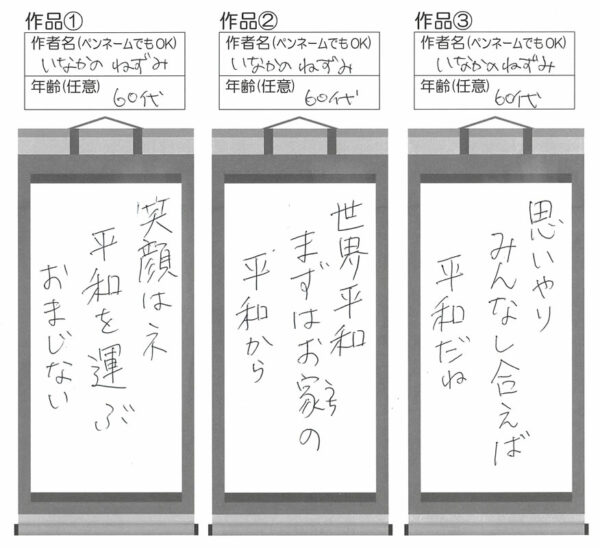 作品①
作者名(ペンネームでもOK)
いなかの ねずみ
年齢(任意)
60代
笑顔はネ
平和を運ぶ
おまじない
作品②
作者名(ペンネームでもOK)
いなかの ねずみ
年齢(任意)
60代
世界平和
まずはお家の
うち
平和から
作品③
作者名(ペンネームでもOK)
いなかのねずみ
年齢(任意)
60代
思いやり
みんなし合えば
平和だね